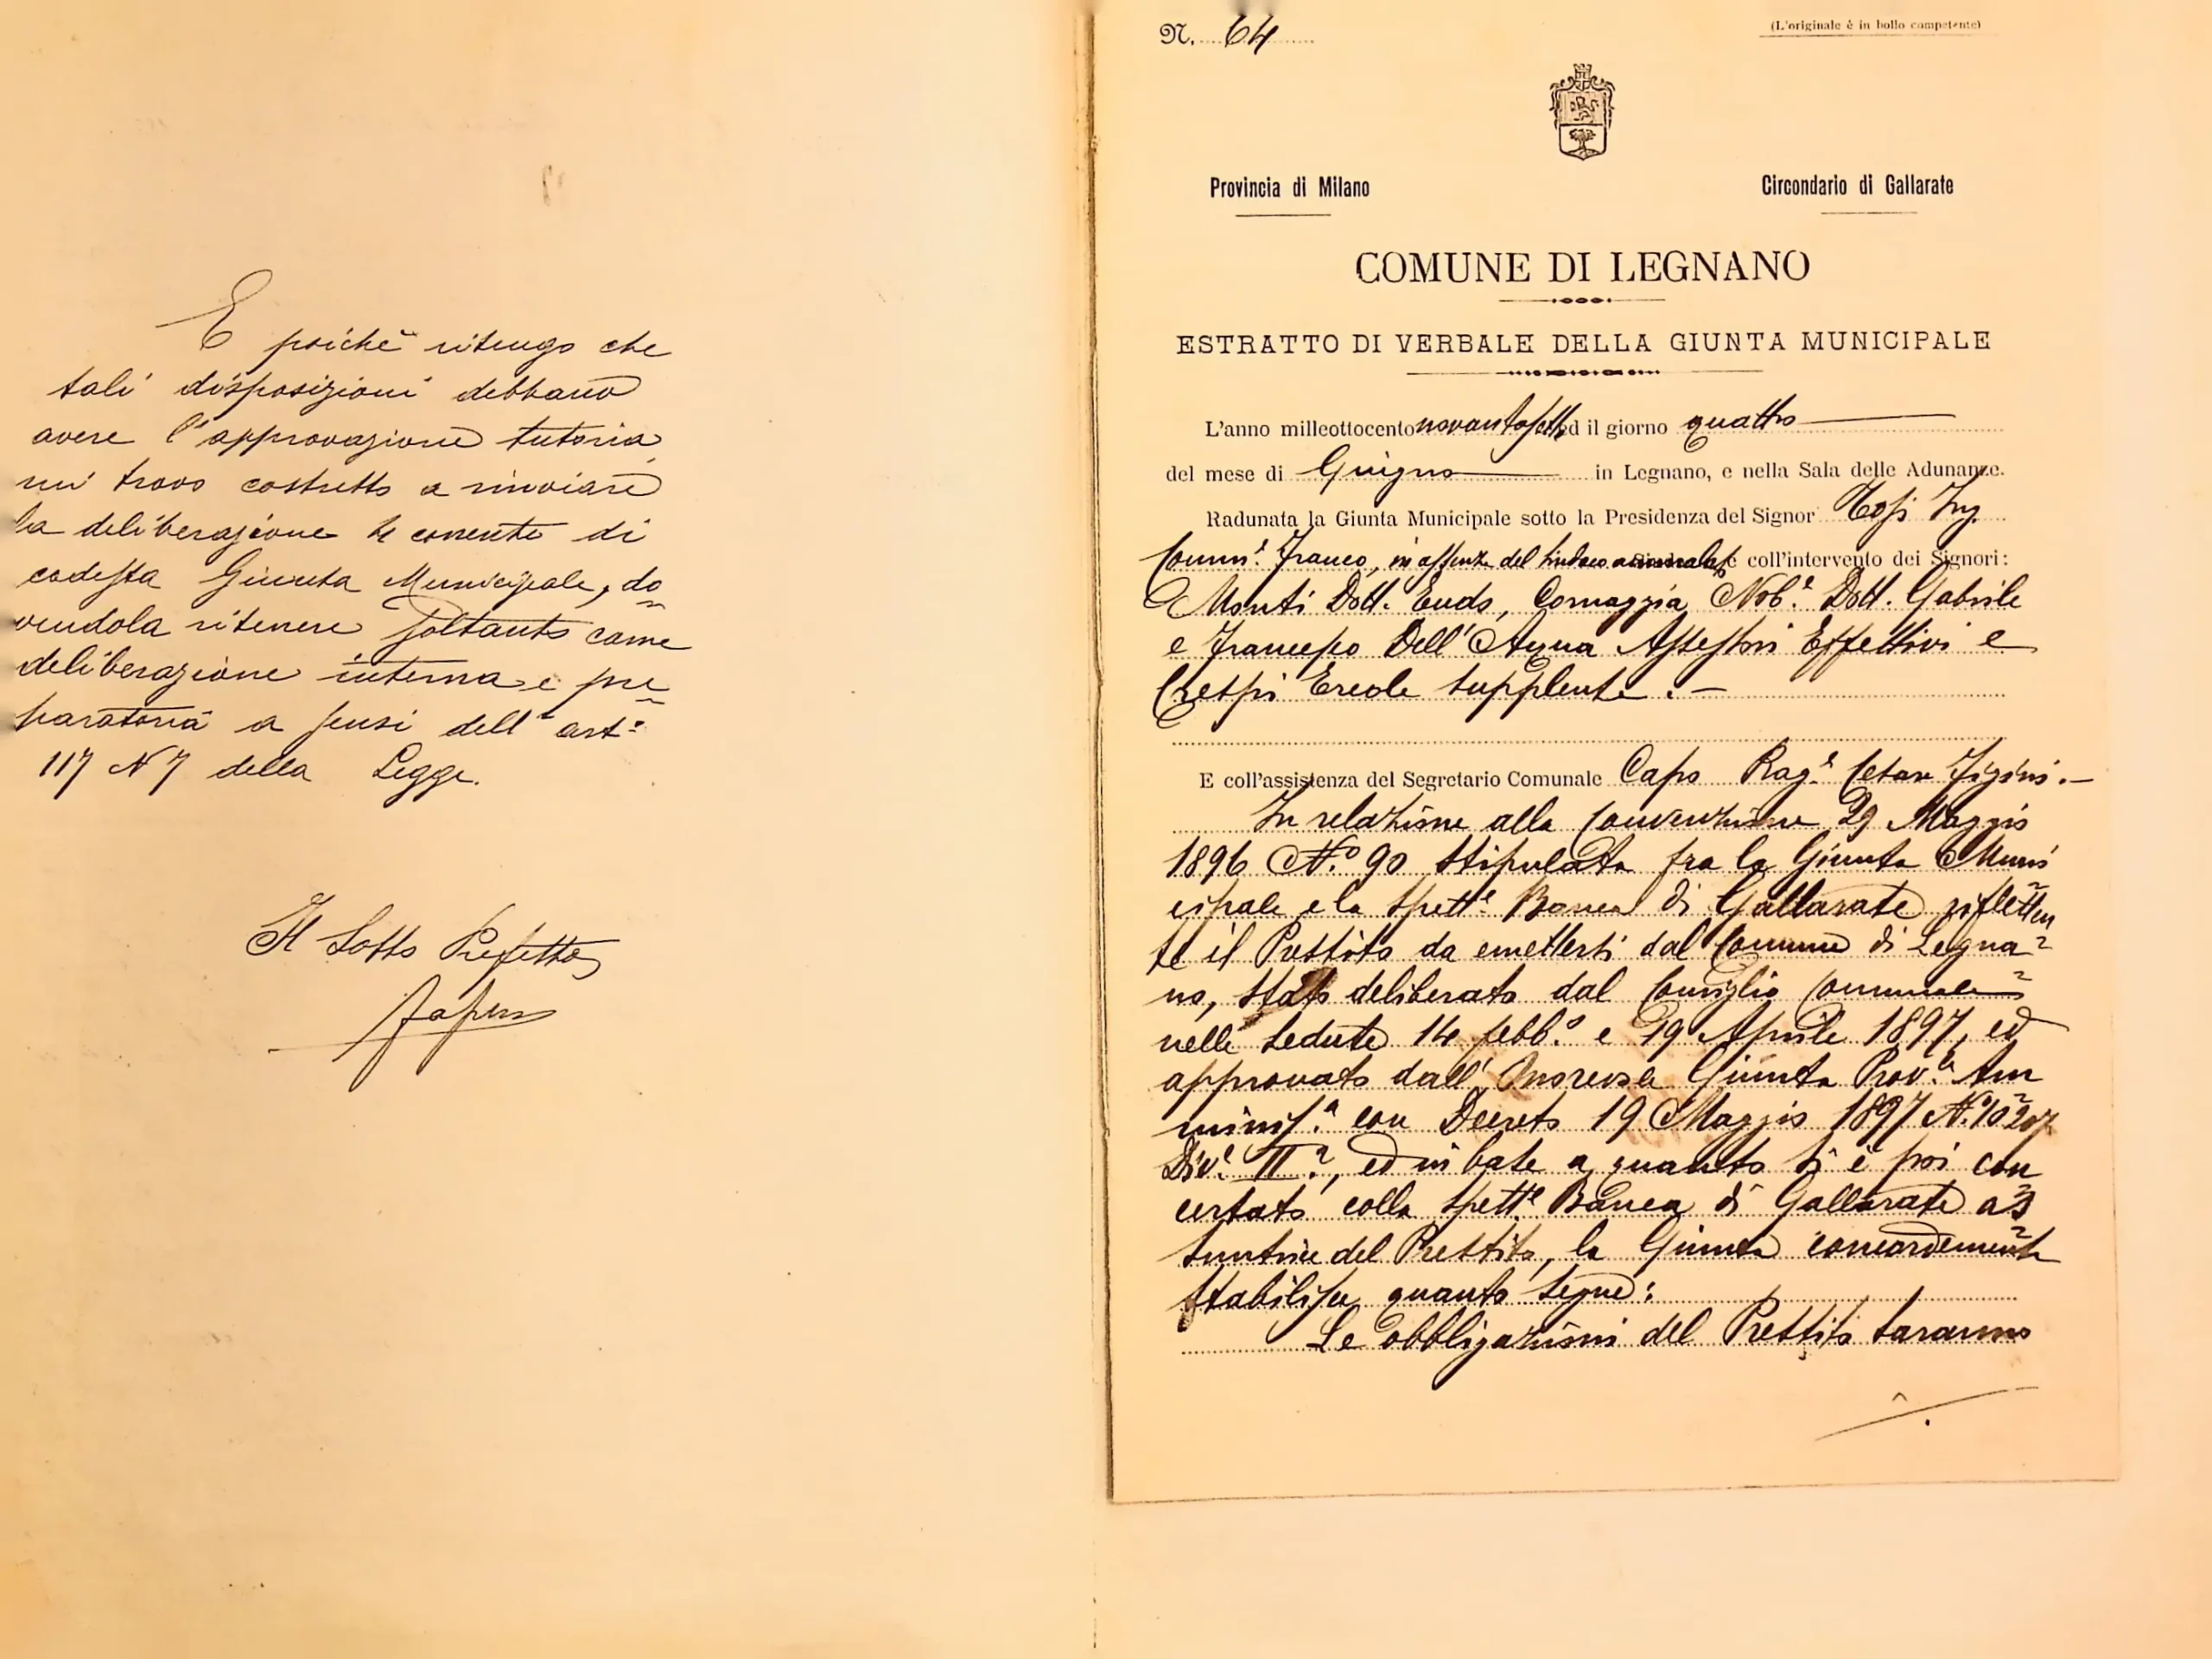 E poichè ritengo che
tali disposizioni debbano
avere l'approvazione tutoria,
mi trovo costretto a rinviare
la deliberazione 4 corrente di
codesta Giunta Municipale, do
vendola ritenere soltanto come
deliberazione interna e pre
paratoria a sensi dell'art:
117 N 7 della Legge.
Il Sotto Prefetto
N. 64
(L'originale è in bollo competente)
Provincia di Milano
Circondario di Gallarate
COMUNE DI LEGNANO
ESTRATTO DI VERBALE DELLA GIUNTA MUNICIPALE
L'anno milleottocento novantasette ed il giorno quattro
del mese di Giugno in Legnano, e nella Sala delle Adunanze.
Radunata la Giunta Municipale sotto la Presidenza del Signor Tosi Ing.
Comm.e Franco, in assenza del Sindaco ammalato, e coll'intervento dei Signori:
Monti Dott. Eudo, Cornaggia Nob.e Dott. Gabrile
e Francesco Dell'Acqua Assessori Effettivi e
Crespi Ercole Supplente. -
E coll'assistenza del Segretario Comunale Capo Rag.e Cesare Figini. -
In relazione alla Convenzione 29 Maggio
1896 N.o 90 stipulata fra la Giunta Muni
cipale e la Spett.e Banca di Gallarate rifletten
te il Prestito da emettersi dal Comune di Legna
no, stato deliberato dal Consiglio Comunale
nelle sedute 14 febb.o e 29 Aprile 1897, ed
approvato dall'Onorevole Giunta Prov.a Am
minis.a con Decreto 19 Maggio 1897 N. 10207
Div.e II.a, ed in base a quanto si è poi con
certato colla Spett.e Banca di Gallarate as
suntrice del Prestito, la Giunta concordemente
stabilisce quanto segue:
Le obbligazioni del Prestito saranno